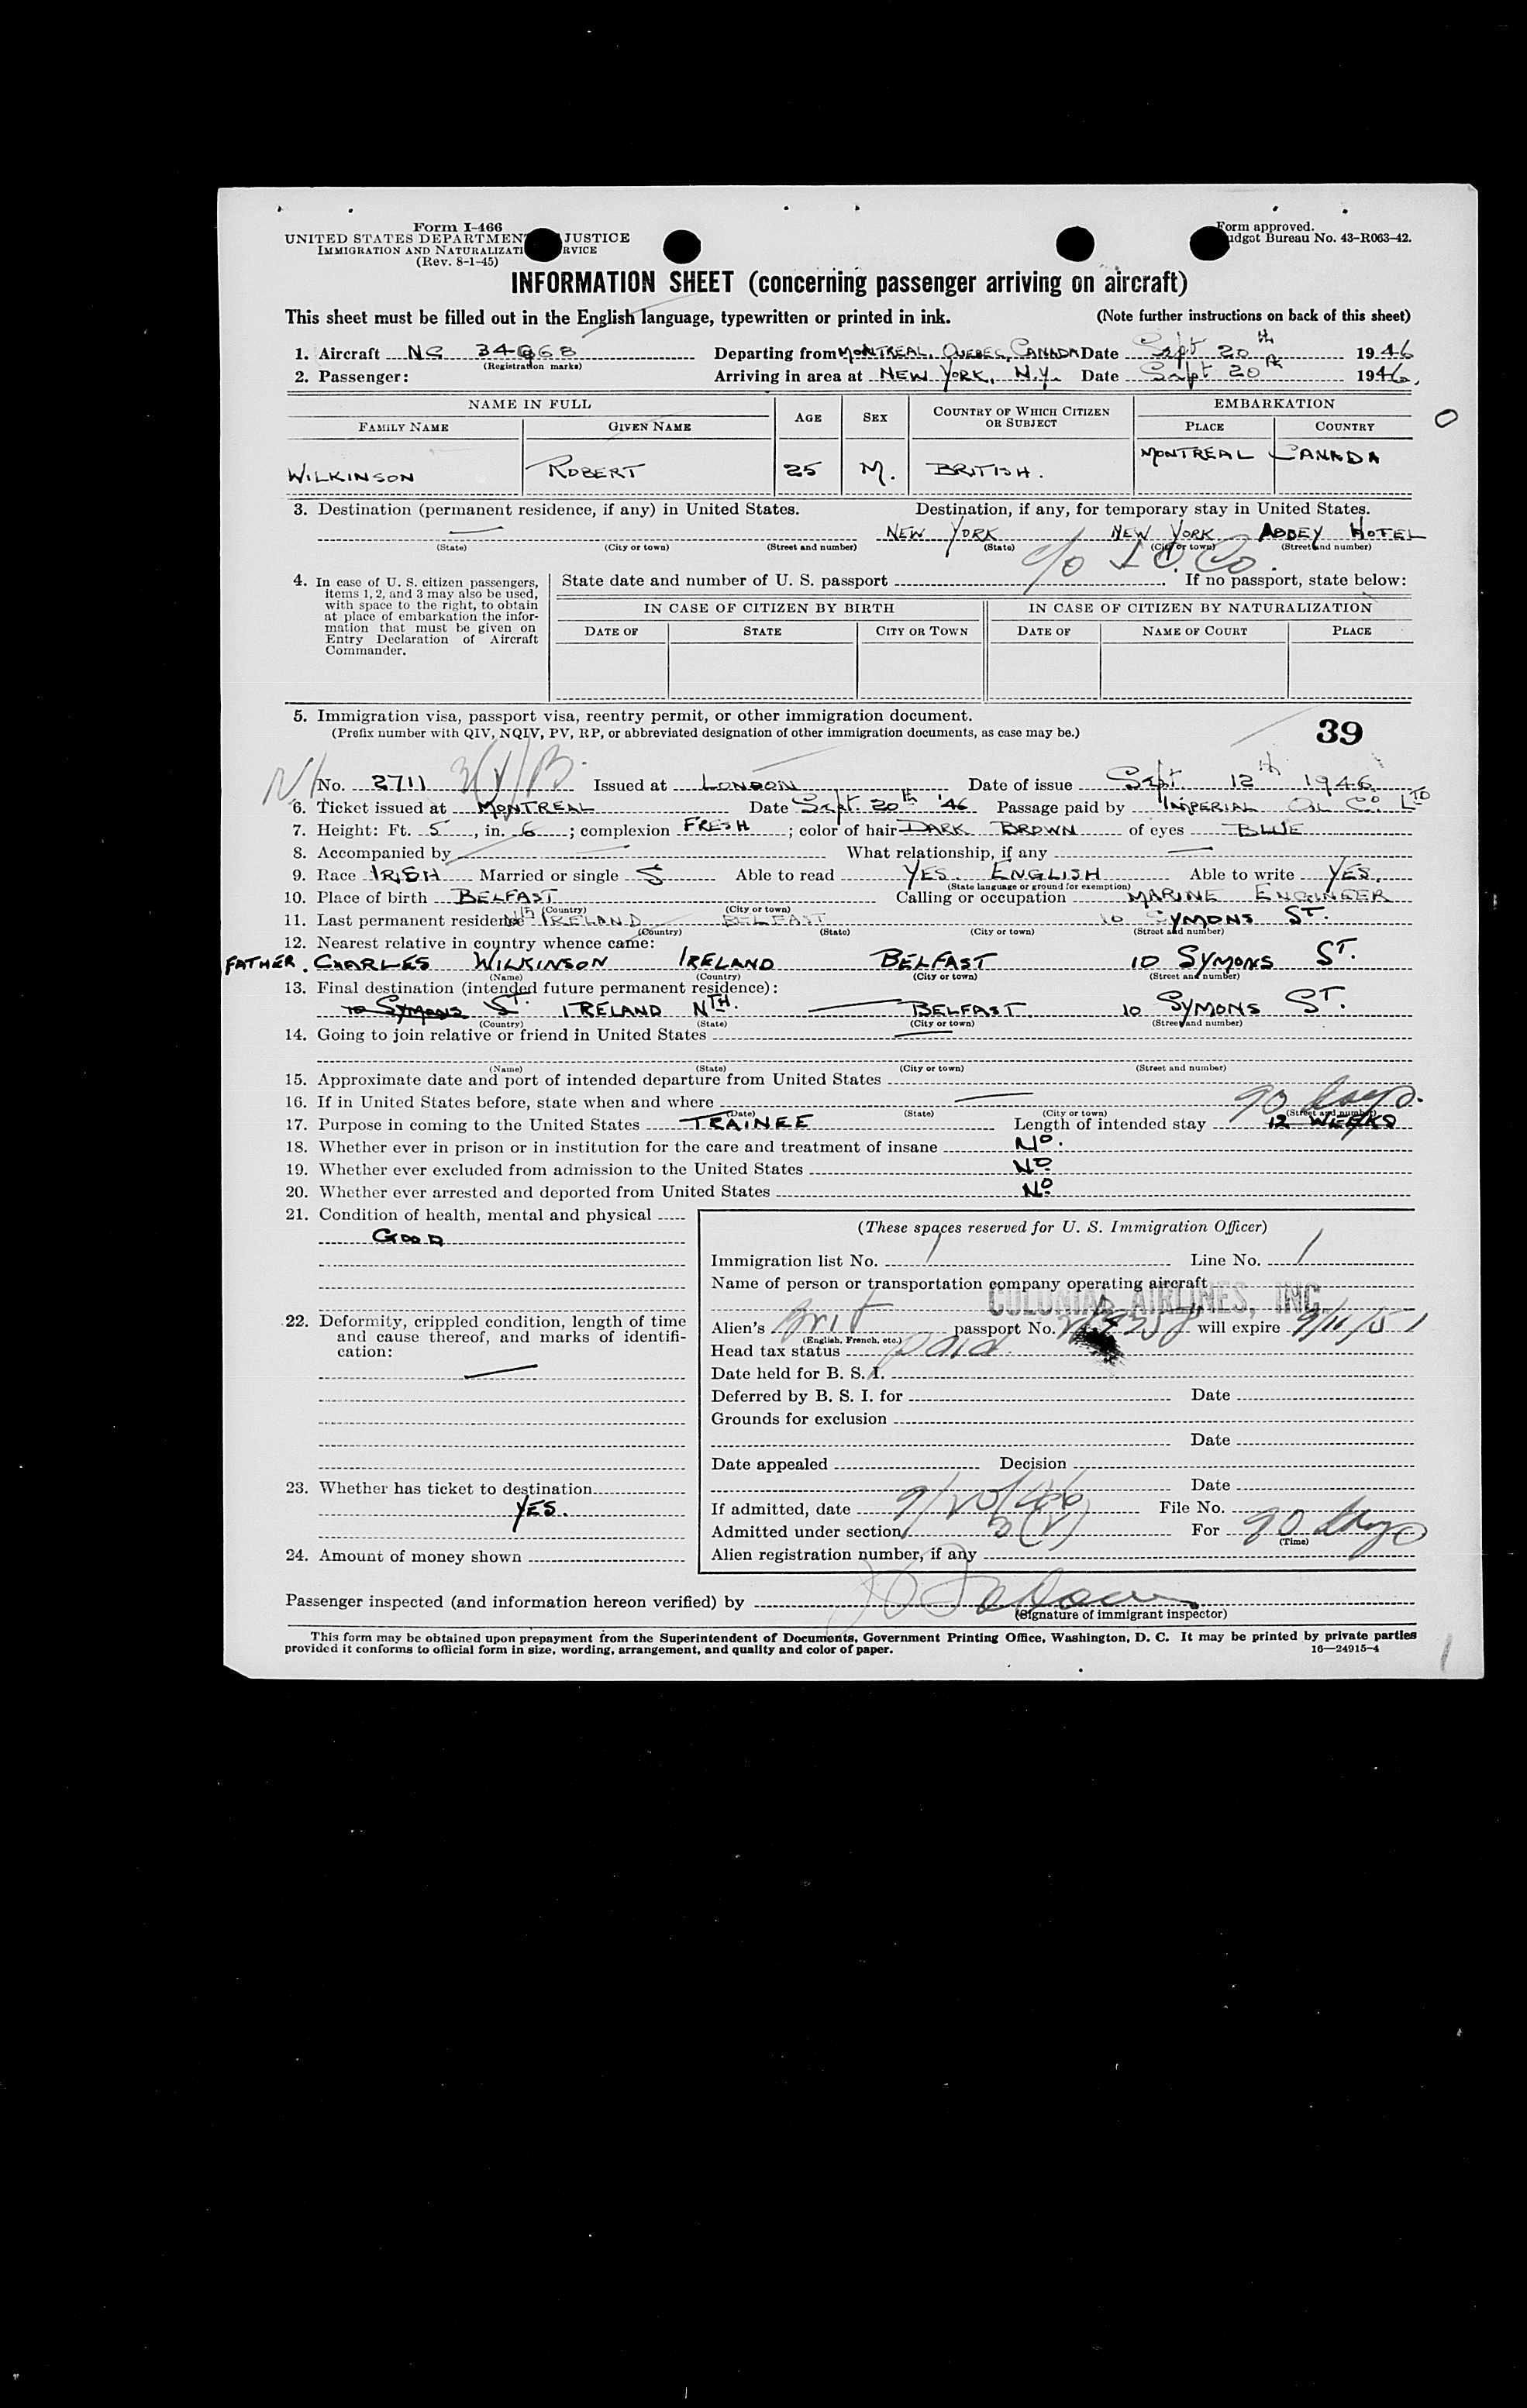 Form I-466
UNITED STATES DEPARTMENT JUSTICE
IMMIGRATION AND NATURALIZATI RVICE
(Rev. 8-1-45)
Form approved.
udget Bureau No. 43-R063-42.
INFORMATION SHEET (concerning passenger arriving on aircraft)
This sheet must be filled out in the English language, typewritten or printed in ink. (Note further instructions on back of this sheet)
1. Aircraft NC Departing from MONTREAL, QUEBEC, CANADA Date Sept 20th 1946
(Registration marks)
2. Passenger: Arriving in area at NEW YORK, N.Y. Date Sept 20th 1946.
NAME IN FULL AGE SEX COUNTRY OF WHICH CITIZEN OR SUBJECT EMBARKATION
FAMILY NAME GIVEN NAME PLACE COUNTRY
WILKINSON ROBERT 25 M. BRITISH. MONTREAL CANADA
3. Destination (permanent residence, if any) in United States. Destination, if any, for temporary stay in United States.
— NEW YORK NEW YORK ABBEY HOTEL
(State) (City or town) (Street and number) (State) (City or town) (Street and number)
c/o I. O. Co.
4. In case of U. S. citizen passengers, items 1, 2, and 3 may also be used, with space to the right, to obtain at place of embarkation the information that must be given on Entry Declaration of Aircraft Commander.
State date and number of U. S. passport If no passport, state below:
IN CASE OF CITIZEN BY BIRTH IN CASE OF CITIZEN BY NATURALIZATION
DATE OF STATE CITY OR TOWN DATE OF NAME OF COURT PLACE
5. Immigration visa, passport visa, reentry permit, or other immigration document.
(Prefix number with QIV, NQIV, PV, RP, or abbreviated designation of other immigration documents, as case may be.)
39
No. 2711 3(1)B Issued at LONDON Date of issue Sept 12th 1946
6. Ticket issued at MONTREAL Date Sept. 20th '46 Passage paid by IMPERIAL OIL CO. LTD
7. Height: Ft. 5, in. 6; complexion FRESH; color of hair DARK BROWN of eyes BLUE
8. Accompanied by — What relationship, if any —
9. Race IRISH Married or single S Able to read YES. ENGLISH Able to write YES.
(State language or ground for exemption)
10. Place of birth BELFAST Calling or occupation MARINE ENGINEER
(Country) (City or town)
11. Last permanent residence NTH IRELAND BELFAST 10 SYMONS ST.
(Country) (State) (City or town) (Street and number)
12. Nearest relative in country whence came:
FATHER. CHARLES WILKINSON IRELAND BELFAST 10 SYMONS ST.
(Name) (Country) (City or town) (Street and number)
13. Final destination (intended future permanent residence):
10 SYMONS ST. IRELAND NTH. — BELFAST 10 SYMONS ST.
(Country) (State) (City or town) (Street and number)
14. Going to join relative or friend in United States —
(Name) (State) (City or town) (Street and number)
15. Approximate date and port of intended departure from United States
16. If in United States before, state when and where —
(Date) (State) (City or town) (Street and number)
90 days.
17. Purpose in coming to the United States TRAINEE Length of intended stay 12 WEEKS
18. Whether ever in prison or in institution for the care and treatment of insane NO.
19. Whether ever excluded from admission to the United States NO
20. Whether ever arrested and deported from United States NO
21. Condition of health, mental and physical
GOOD
22. Deformity, crippled condition, length of time and cause thereof, and marks of identification:
—
23. Whether has ticket to destination
YES.
24. Amount of money shown
(These spaces reserved for U. S. Immigration Officer)
Immigration list No. 1 Line No. 1
Name of person or transportation company operating aircraft
COLONIAL AIRLINES, INC.
Alien's Brit passport No. will expire 9/11/51
(English, French, etc.)
Head tax status paid
Date held for B. S. I.
Deferred by B. S. I. for Date
Grounds for exclusion
Date
Date appealed Decision
Date
If admitted, date 9/20/46 File No.
Admitted under section 3(2) For 90 days
(Time)
Alien registration number, if any
Passenger inspected (and information hereon verified) by
(Signature of immigrant inspector)
This form may be obtained upon prepayment from the Superintendent of Documents, Government Printing Office, Washington, D. C. It may be printed by private parties
provided it conforms to official form in size, wording, arrangement, and quality and color of paper. 16—24915-4